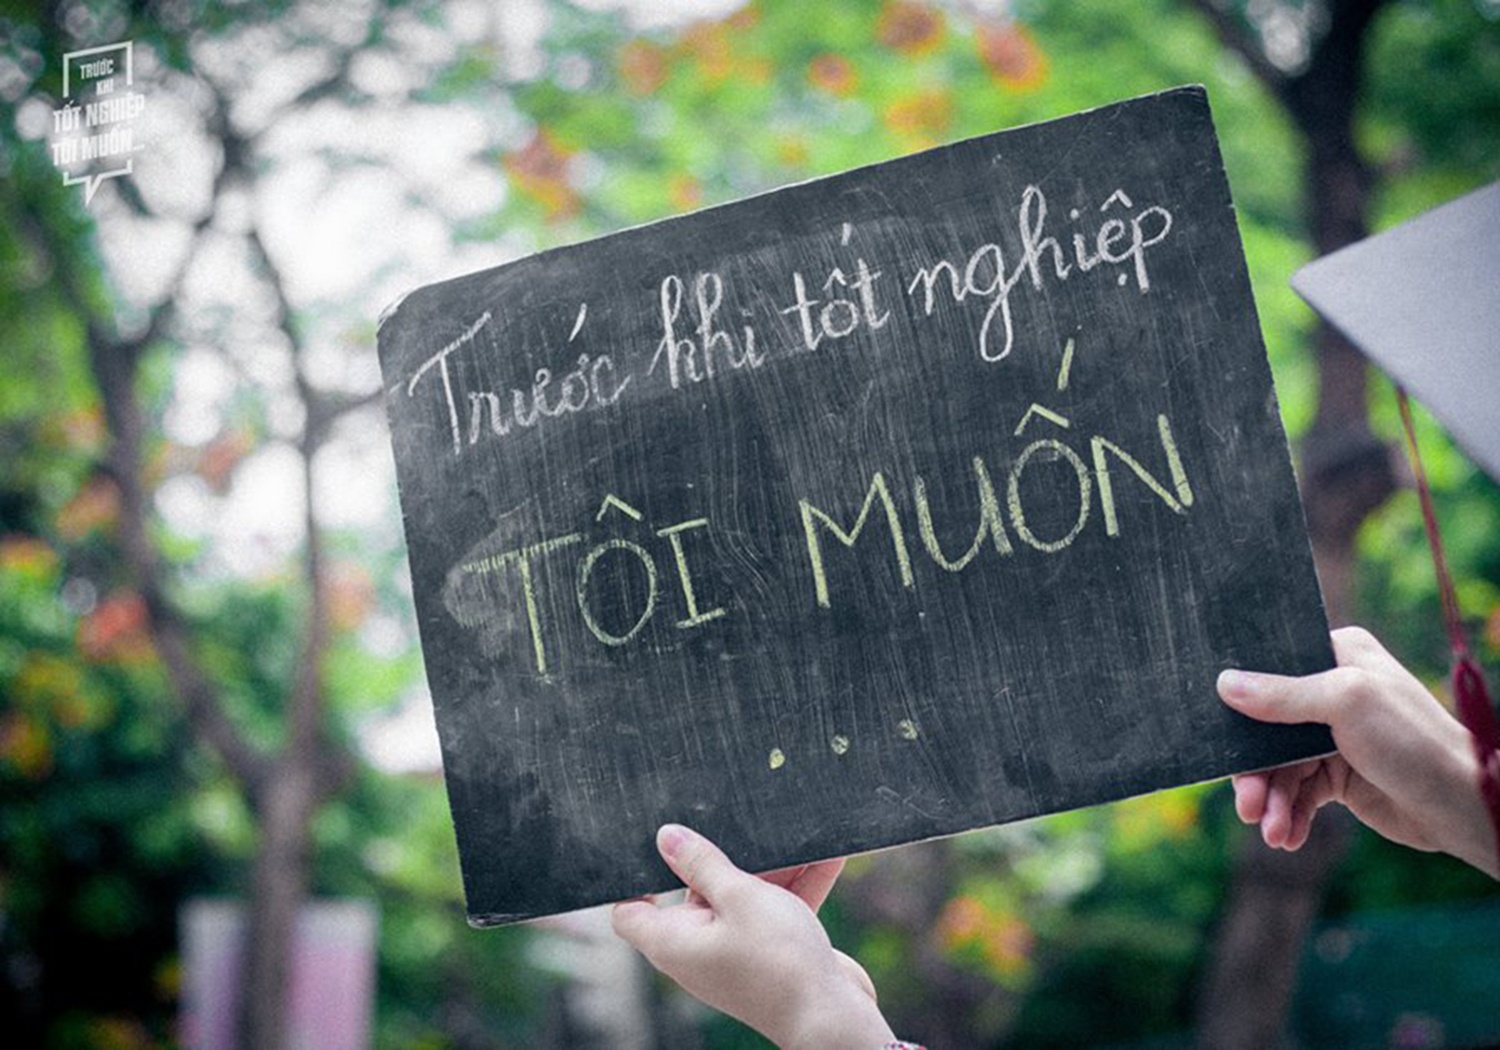 TRƯỚC
KHI
TỐT NGHIỆP
TÔI MUỐN...
Trước khi tốt nghiệp
TÔI MUỐN
...